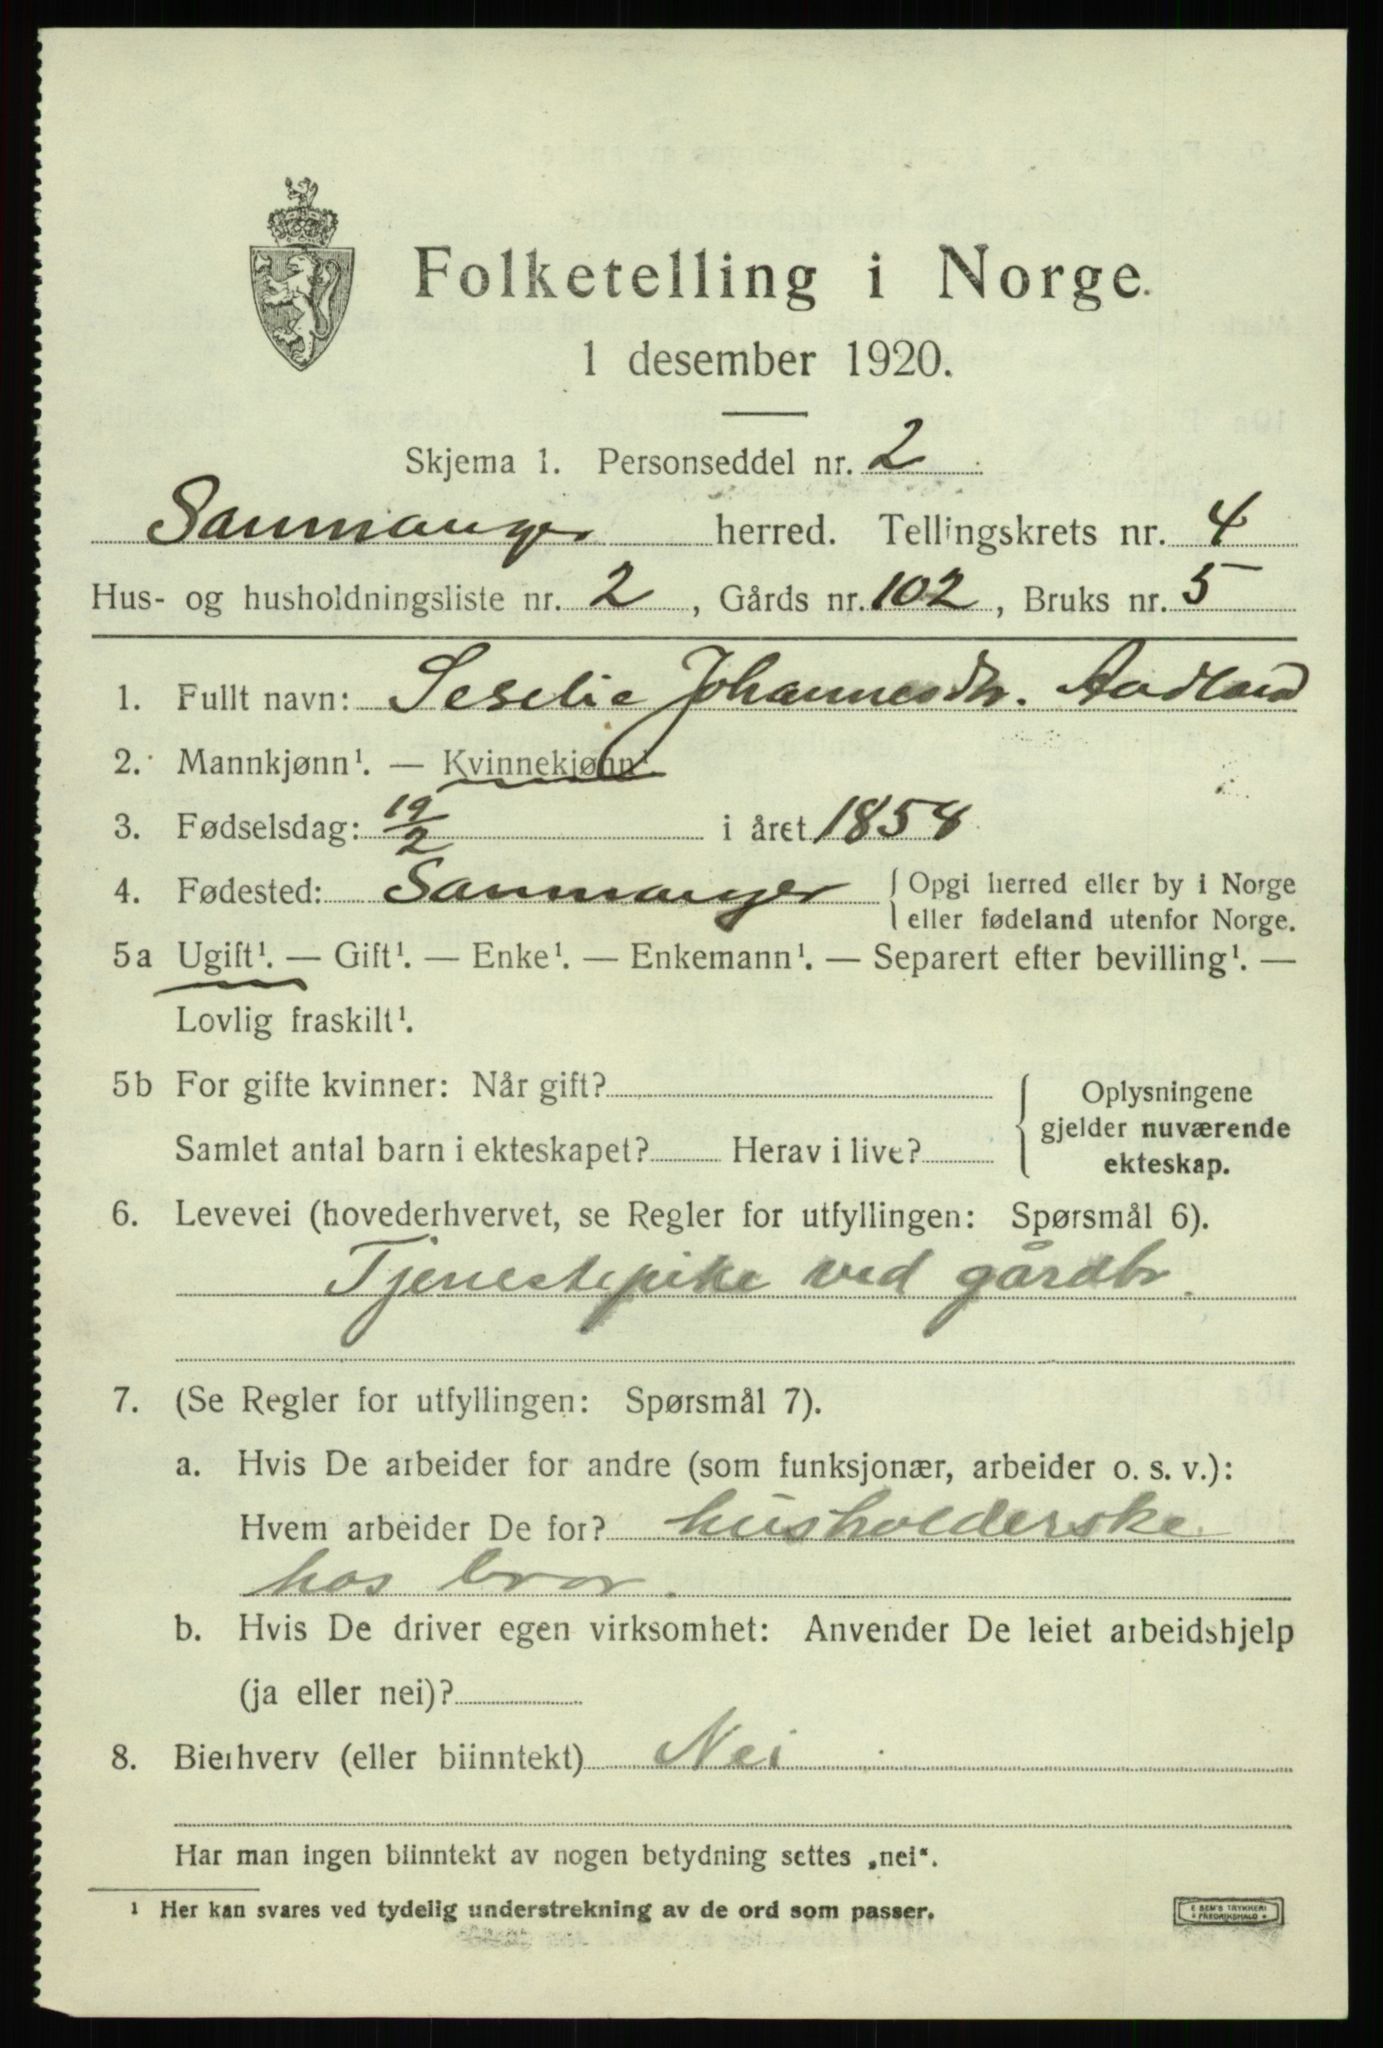 Folketelling i Norge.
1 desember 1920.
Skjema 1. Personseddel nr. 2
Samnanger herred. Tellingskrets nr. 4
Hus- og husholdningsliste nr. 2, Gårds nr. 102, Bruks nr. 5
1. Fullt navn: Seselie Johannesdtr. Aadland
2. Mannkjønn¹. — Kvinnekjønn¹.
3. Fødselsdag: 19/2 i året 1854
4. Fødested: Samnanger { Opgi herred eller by i Norge
eller fødeland utenfor Norge.
5a Ugift¹. — Gift¹. — Enke¹. — Enkemann¹. — Separert efter bevilling¹. —
Lovlig fraskilt¹.
5b For gifte kvinner: Når gift? { Oplysningene
gjelder nuværende
Samlet antal barn i ekteskapet? Herav i live? ekteskap.
6. Levevei (hovederhvervet, se Regler for utfyllingen: Spørsmål 6).
Tjenestepike ved gårdbr.
7. (Se Regler for utfyllingen: Spørsmål 7).
a. Hvis De arbeider for andre (som funksjonær, arbeider o. s. v.):
Hvem arbeider De for? husholderske
hos bror.
b. Hvis De driver egen virksomhet: Anvender De leiet arbeidshjelp
(ja eller nei)?
8. Bierhverv (eller biinntekt) Nei
Har man ingen biinntekt av nogen betydning settes „nei“.
¹ Her kan svares ved tydelig understrekning av de ord som passer.
E SEM'S TRYKKERI
FREDRIKSHALD